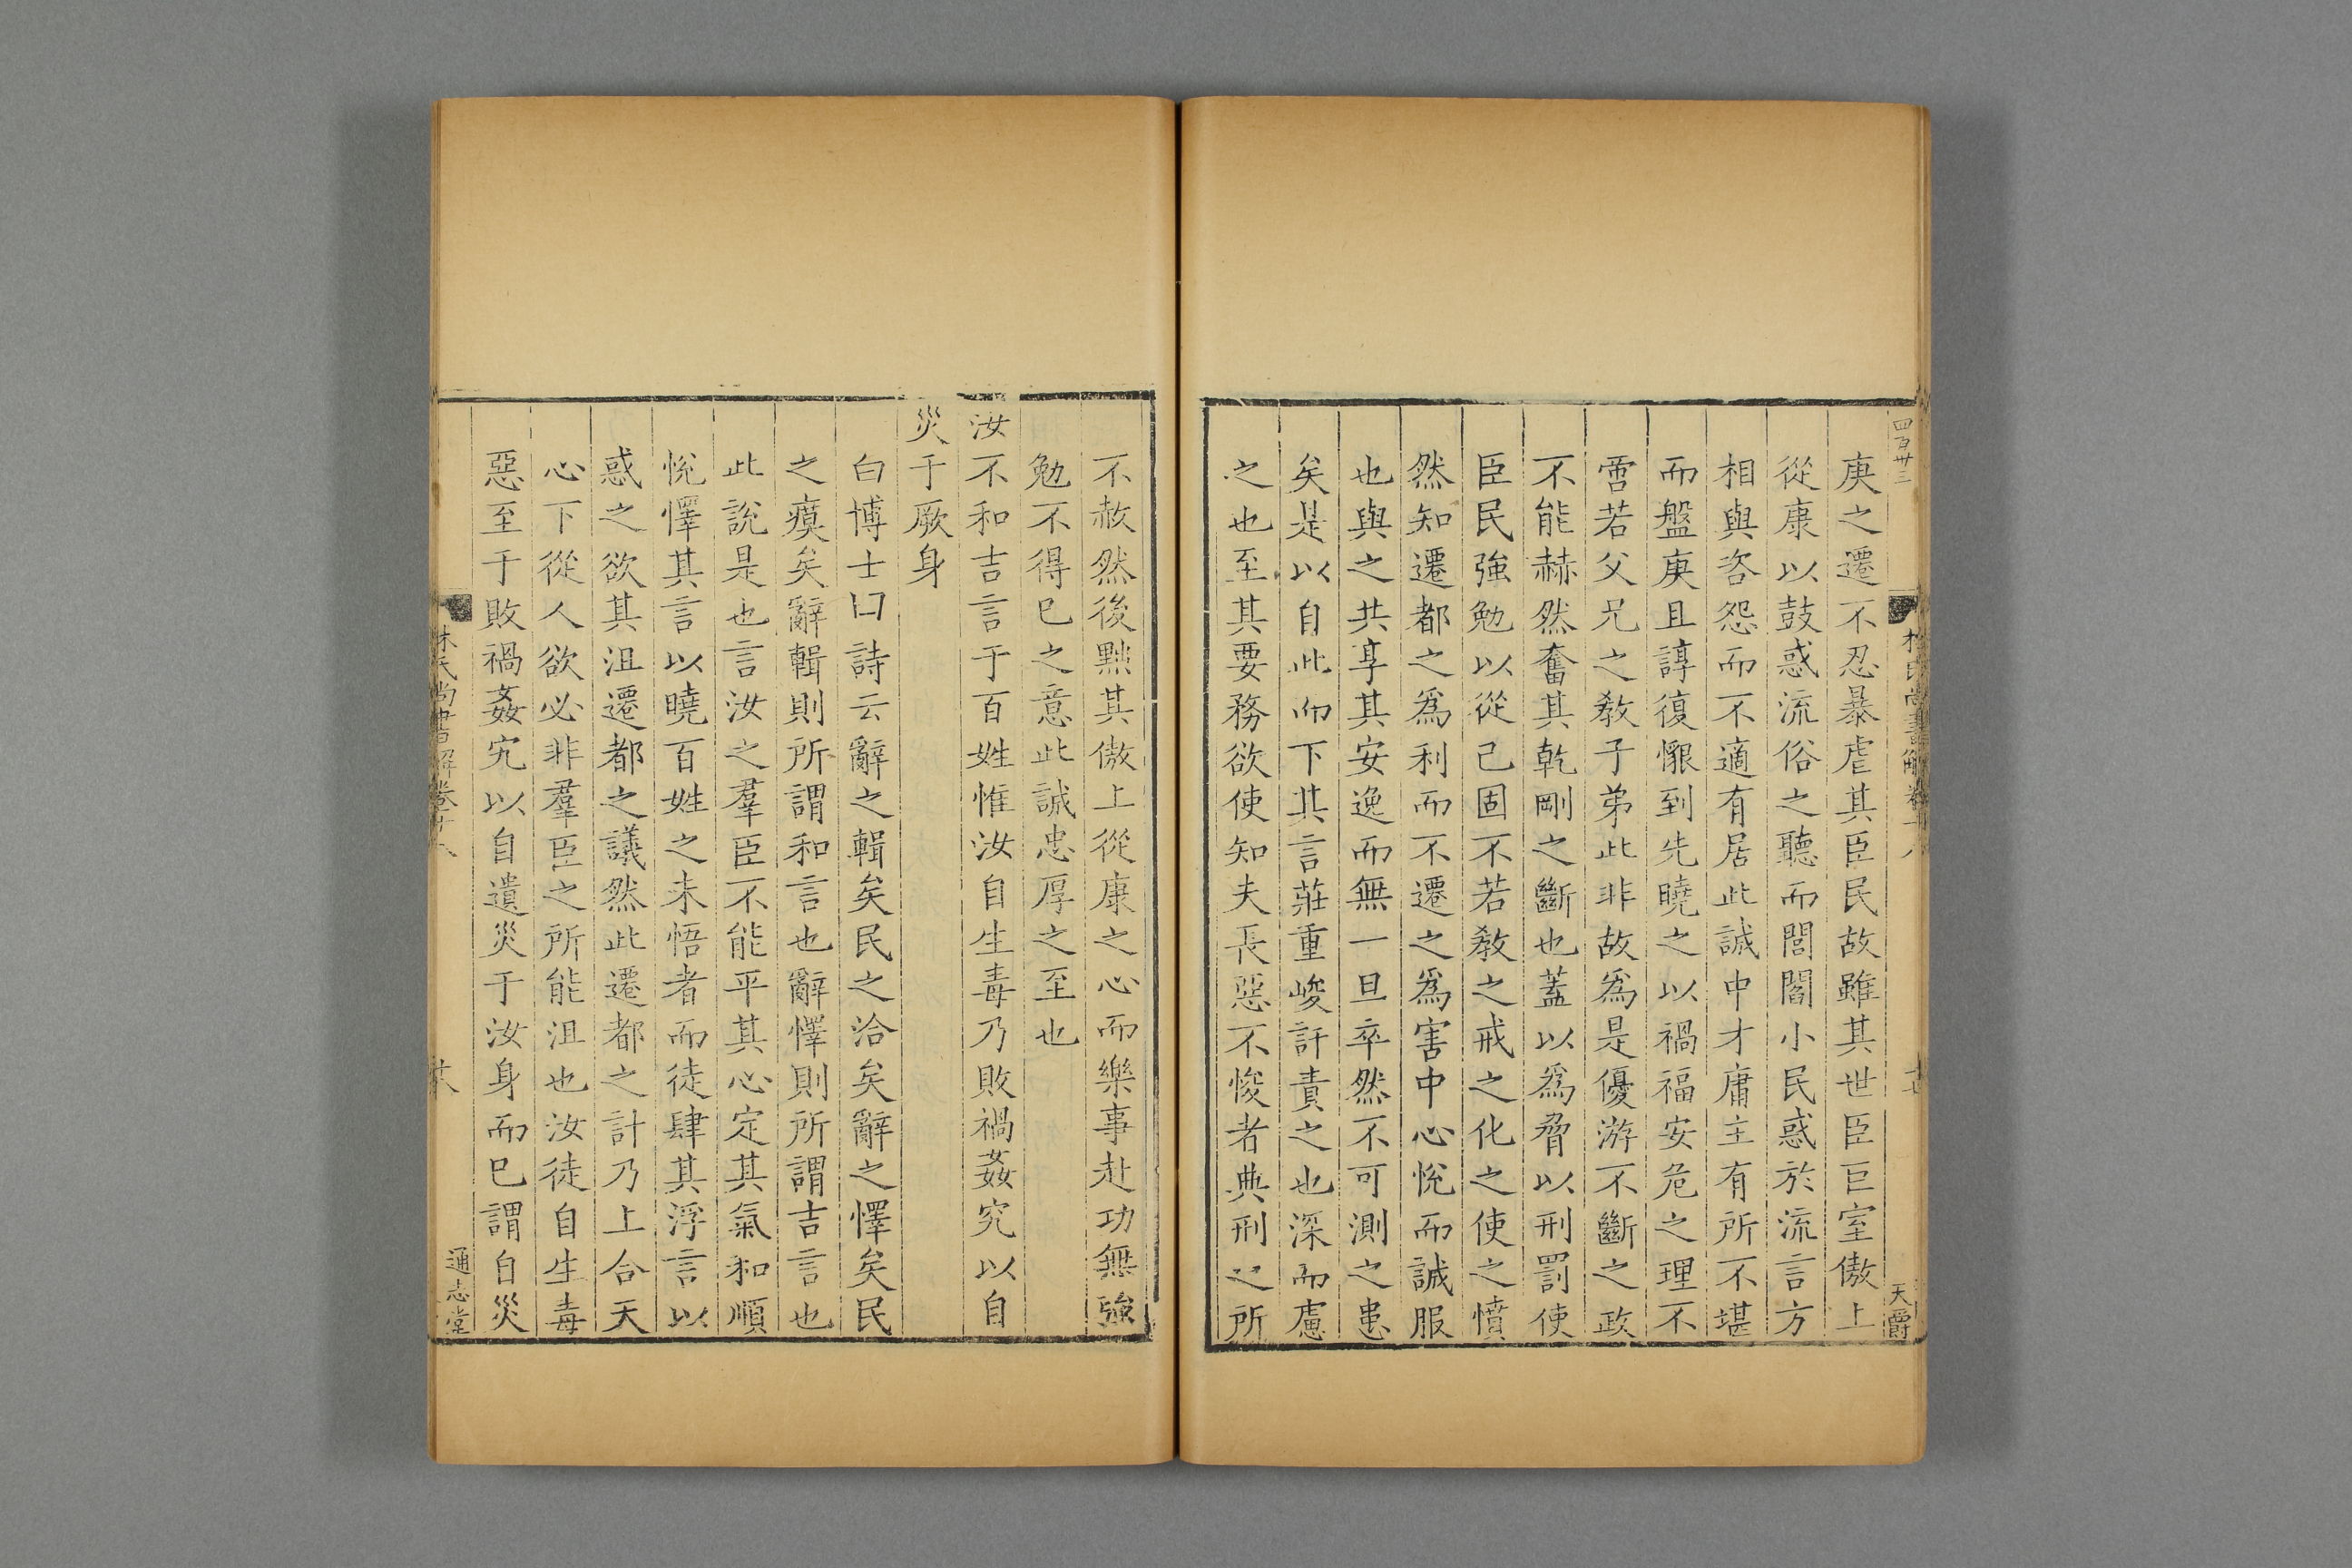 四百卅三
庚之遷不忍暴虐其臣民故雖其世臣巨室傲上
從康以鼓惑流俗之聽而閭閻小民惑於流言方
相與咨怨而不適有居此誠中才庸主有所不堪
而盤庚且諄復懇到先曉之以禍福安危之理不
啻若父兄之敎子弟此非故爲是優游不斷之政
不能赫然奮其乾剛之斷也蓋以爲脅以刑罰使
臣民強勉以從己固不若敎之戒之化之使之憤
然知遷都之爲利而不遷之爲害中心悅而誠服
也與之共享其安逸而無一旦卒然不可測之患
矣是以自此而下其言莊重峻訐責之也深而慮
之也至其要務欲使知夫長惡不悛者典刑之所
林氏尚書解卷十八
天爵
不赦然後黜其傲上從康之心而樂事赴功無強
勉不得已之意此誠忠厚之至也
汝不和吉言于百姓惟汝自生毒乃敗禍姦宄以自
災于厥身
白博士曰詩云辭之輯矣民之洽矣辭之懌矣民
之瘼矣辭輯則所謂和言也辭懌則所謂吉言也
此說是也言汝之羣臣不能平其心定其氣和順
悅懌其言以曉百姓之未悟者而徒肆其浮言以
惑之欲其沮遷都之議然此遷都之計乃上合天
心下從人欲必非羣臣之所能沮也汝徒自生毒
惡至于敗禍姦宄以自遺災于汝身而已謂自災
林氏尚書解卷十八
通志堂